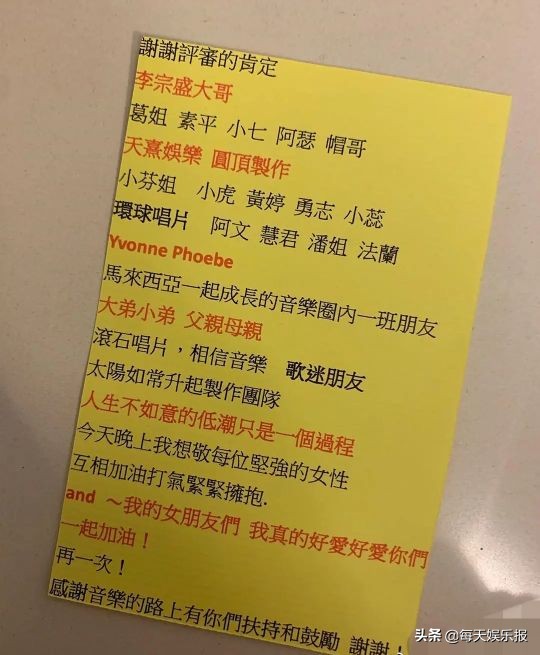 謝謝評審的肯定
李宗盛大哥
葛姐 素平 小七 阿瑟 帽哥
天熹娛樂 圓頂製作
小芬姐 小虎 黃婷 勇志 小蕊
環球唱片 阿文 慧君 潘姐 法蘭
Yvonne Phoebe
馬來西亞一起成長的音樂圈內一班朋友
大弟小弟 父親母親
滾石唱片，相信音樂 歌迷朋友
太陽如常升起製作團隊
人生不如意的低潮只是一個過程
今天晚上我想敬每位堅強的女性
互相加油打氣緊緊擁抱.
and ～我的女朋友們 我真的好愛好愛你們
一起加油！
再一次！
感謝音樂的路上有你們扶持和鼓勵 謝謝！
头条 @每天娱乐报